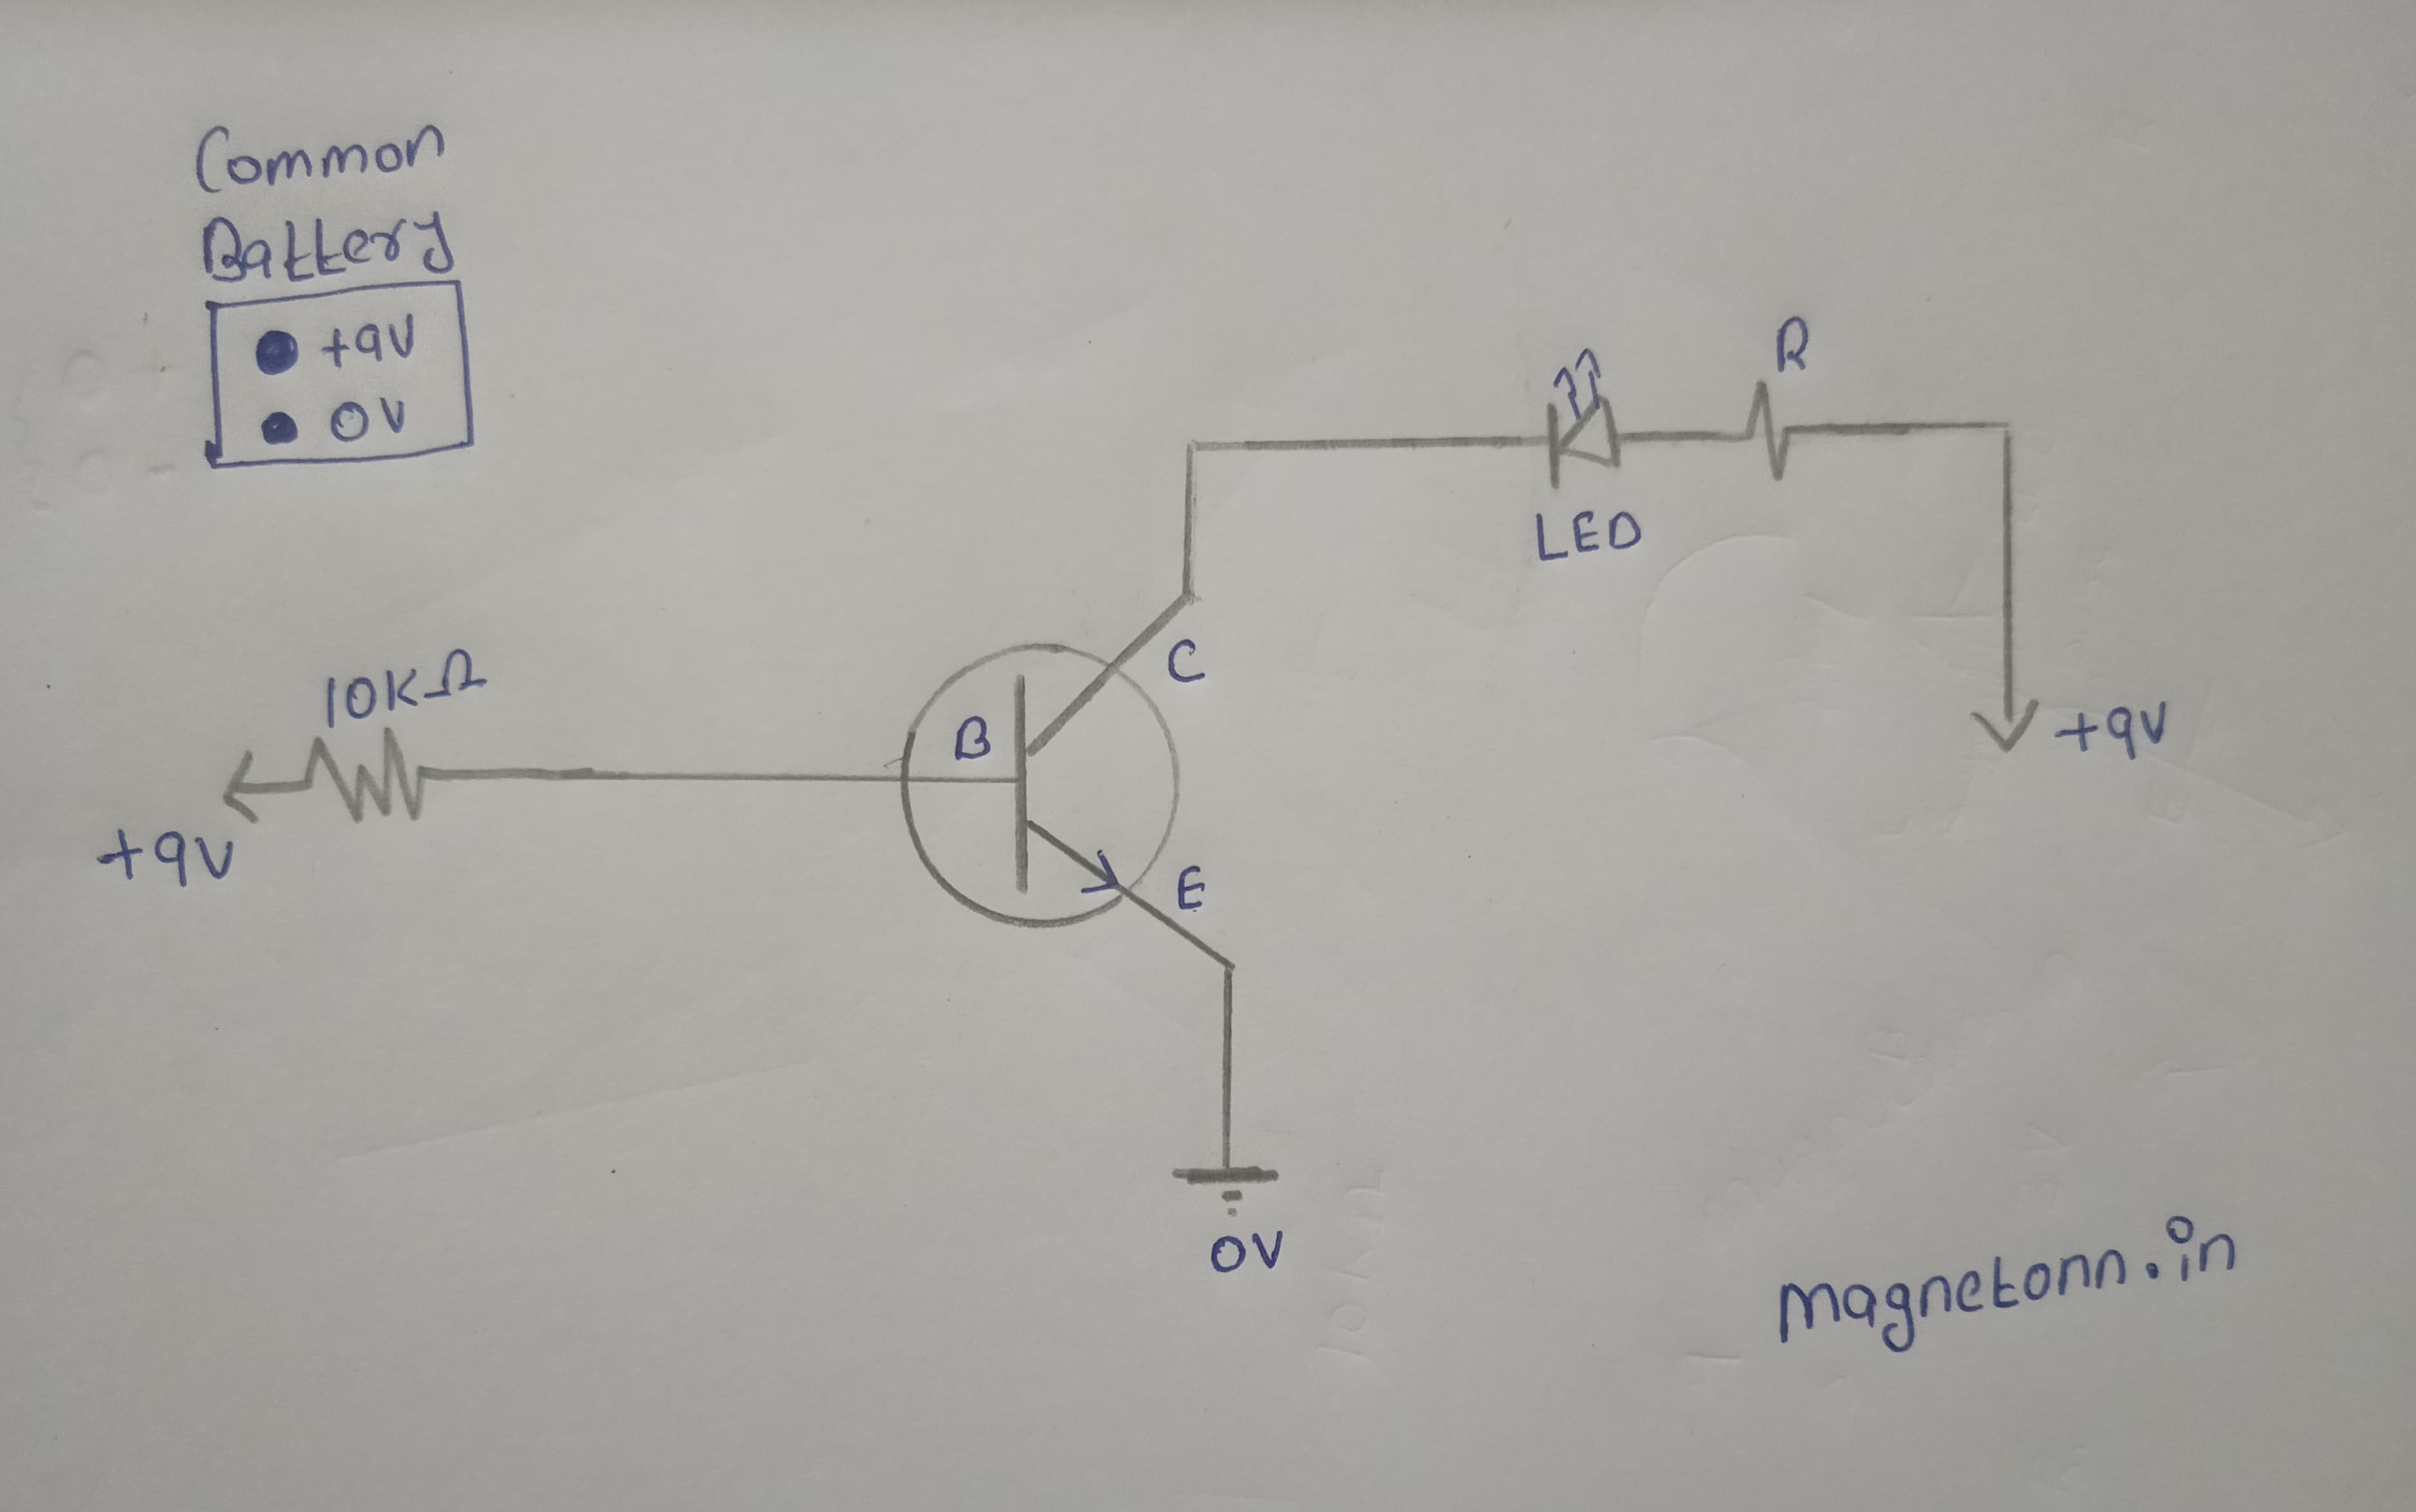 Common
Battery
+9V
0V
R
LED
C
10KΩ
B
+9V
+9V
E
0V
magnetonn.in